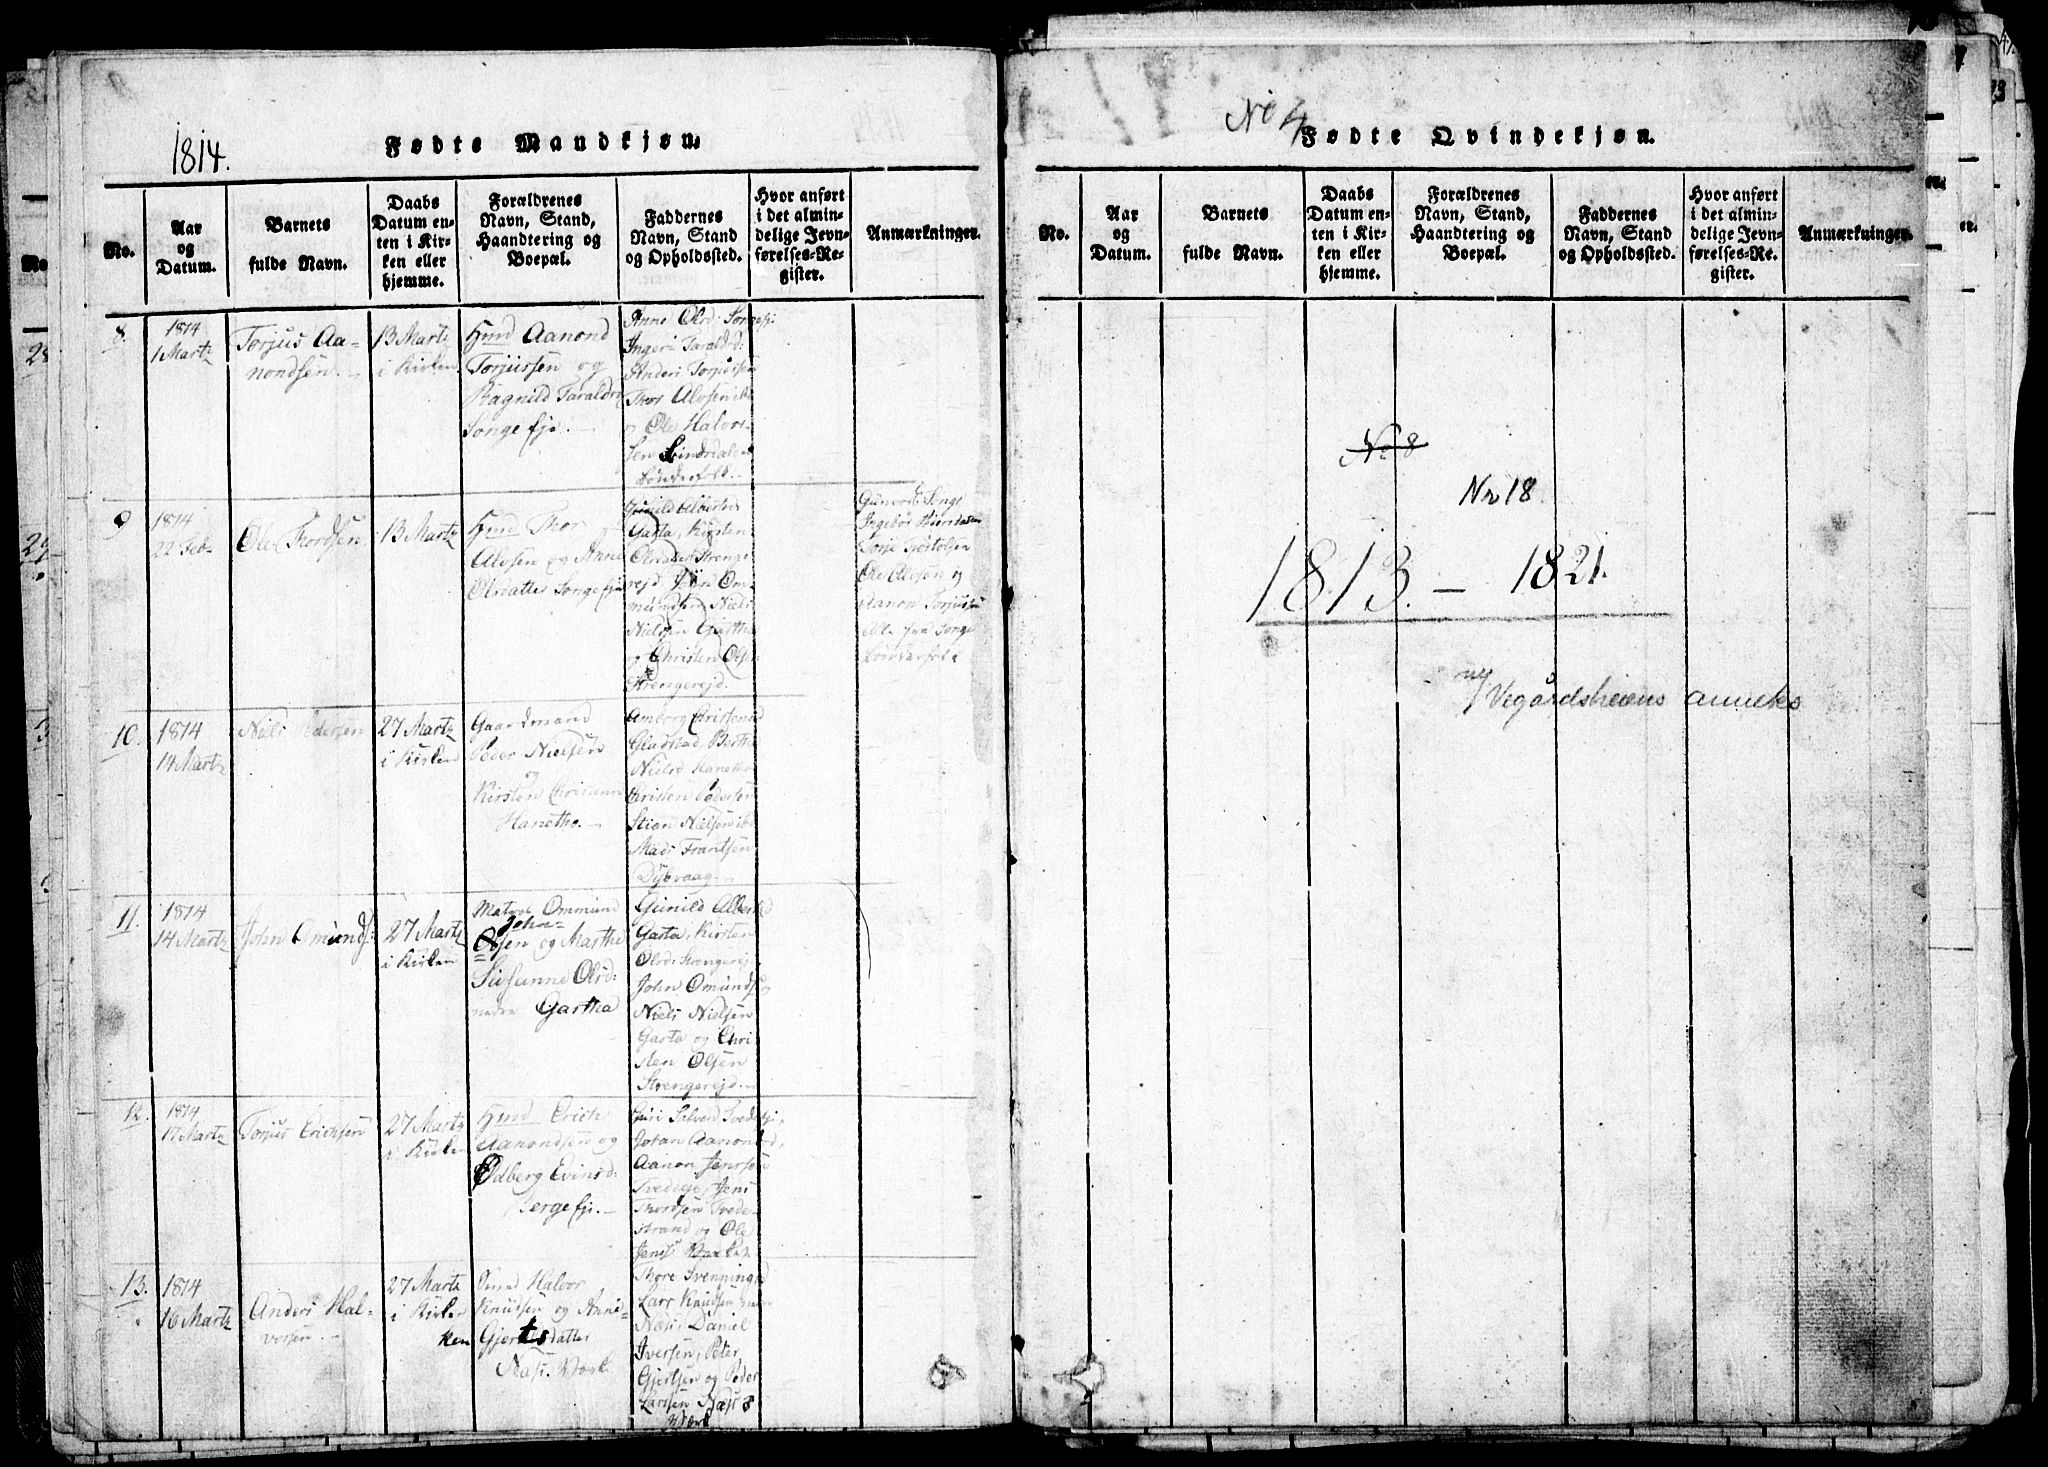 1814.
Fødte Mandkjøn.
No.
Aar
og
Datum.
Barnets
fulde Navn.
Daabs
Datum en-
ten i Kir-
ken eller
hjemme.
Forældrenes
Navn, Stand,
Haandtering og
Boepæl.
Faddernes
Navn, Stand
og Opholdssted.
Hvor anført
i det almin-
delige Jevn-
førelses-Re-
gister.
Anmærkninger.
8.
1814
1 Martz
Torjus Aa-
nondsen.
13 Martz
i Kirken
Hmd Aanond
Torjussen og
Ragnild Taraldsd
Songe fji.
Anne Olsd: Songe fji
Ingeri Taraldsd:
Anders Torjussen
Thor Alvsen ibd
og Ole Halvor-
sen
Bønderfolk.
9
1814
22 Feb
Ole Thordsen
13 Martz
Hmd Thor
Alvsen og Anne
Olsdatter Songe fji
Gunild Albertsd
Garta, Kirsten
Olsdatter Strenge-
rejd John Om-
mundsen Niels
Nielsen Gartha
og Christen Olsen
Strengerejd.
Songe
Ingebor
Torje Tostolsen
Ole Olsen og
Aanon Torjussen
Alle fra Songe
Bønderfolk
10.
1814
14 Martz
Niels Pedersen
27 Martz
i Kirken
Gaardmand
Peder Nielsen
og
Kirsten Christensd
Hanetho.
Amborg Christensd
Gladstad, Berthe
Nielsd Hanetho
Christen Pedersen
Stian Nielsen ibd
Mads Frantsen
Dybvaag.
11.
1814
14 Martz
John Omunds:
27 Martz
i Kirken
Matros Ommund
John-
Olsen og Marthe
Susanne Olsd:
nedre Gartha
Gunild Albertsd
Garta, Kirsten
Olsd: Strengerejd
John Omunds:
Niels Nielsen
Garta og Chri-
sten Olsen
Strengerejd.
12.
1814
17 Martz
Torjus Erichsen
27 Martz
i Kirken
Hmd Erich
Aanondsen og
Edberg Evinsd:
Berge fji.
Guri Salvesd Tvede fji,
Johan Aanonsd,
Aanon Jensen
Tvede fji, Jens
Thordsen Tvede-
strand og Ole
Jens:
13.
1814
16 Martz
Anders Hal-
vorsen
27 Martz
i Kirken
ken
Smed Halvor
Knudsen og Anne
Gjertsdatter
Næs Værk
Thore Svenningsd
Lars Knudsen
Næs, Daniel
Iversen, Peter
Gjertsen og Peder
Larssen Næss
Værk
No 4
Fødte Qvindekjøn.
No.
Aar
og
Datum.
Barnets
fulde Navn.
Daabs
Datum en-
ten i Kir-
ken eller
hjemme.
Forældrenes
Navn, Stand,
Haandtering og
Boepæl.
Faddernes
Navn, Stand
og Opholdssted.
Hvor anført
i det almin-
delige Jevn-
førelses-Re-
gister.
Anmærkninger.
No 8
Nr 18.
1813. – 1821.
Vegårdsheiens anneks